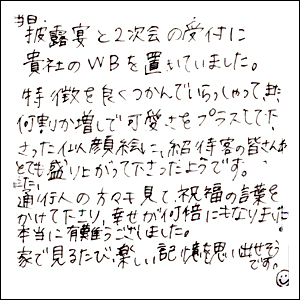 当日、
披露宴と2次会の受付に
貴社のWBを置いていました。
特徴を良くつかんでいらっしゃって、また、
何割か増しで可愛さをプラスして下
さった似顔絵に、招待客の皆さんも
とても盛り上がって下さったようです。
また、
通行人の方々も見て、祝福の言葉を
かけて下さり、幸せが何倍にもなりました
本当に有難うございました。
家で見るたび、楽しい記憶を思い出せそう
です。